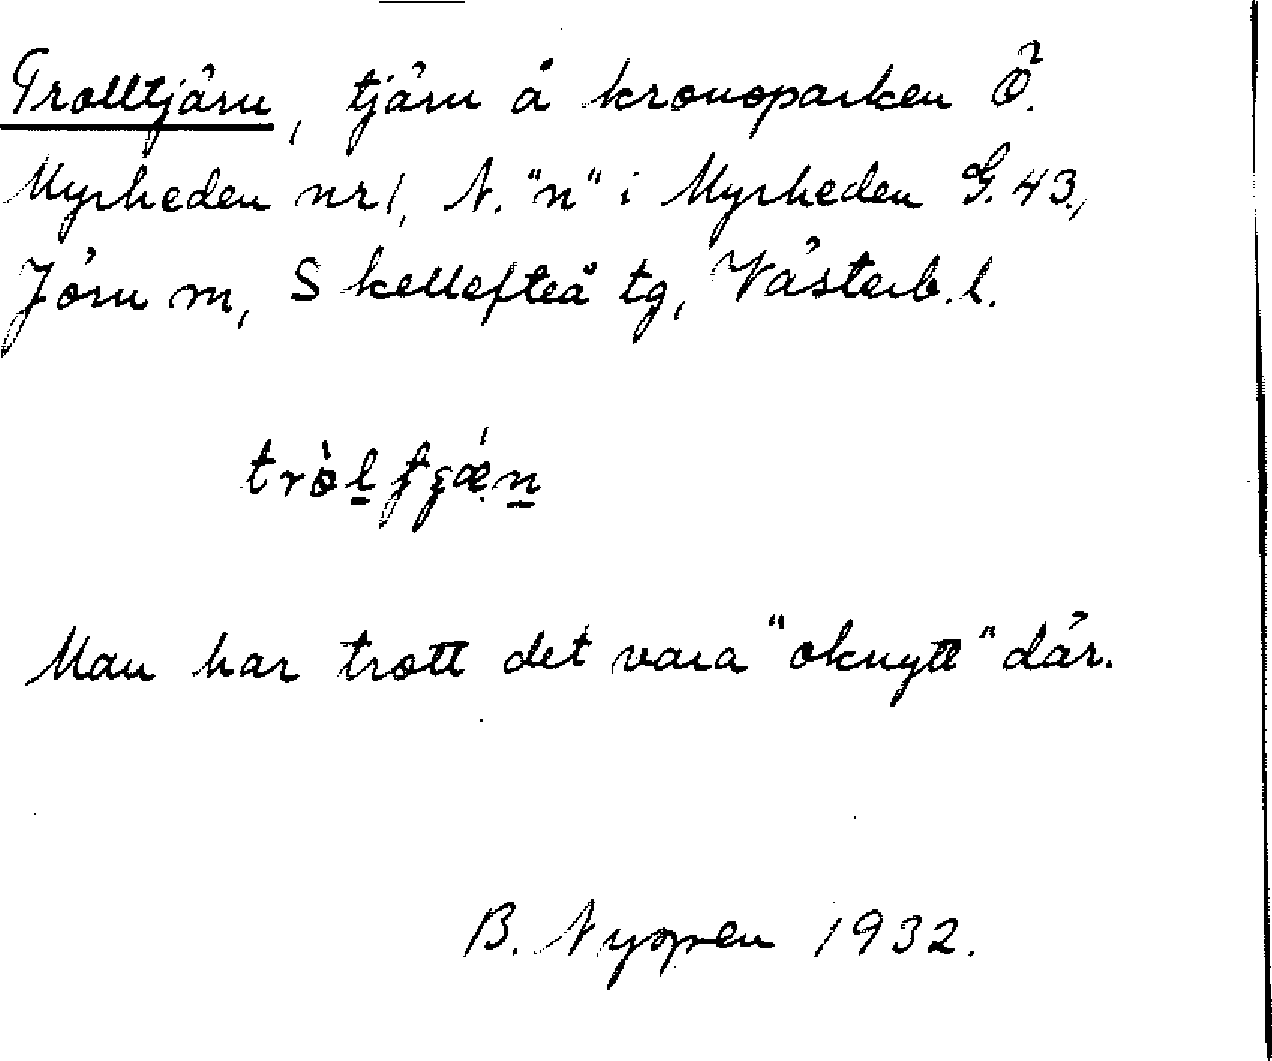 Trolltjärn, tjärn å kronoparken Ö.
Myrheden nr 1, N. "n" i Myrheden G. 43,
Jörn sn, Skellefteå tg, Västerb. l.
Man har trott det vara "oknytt" där.
B. 1932.